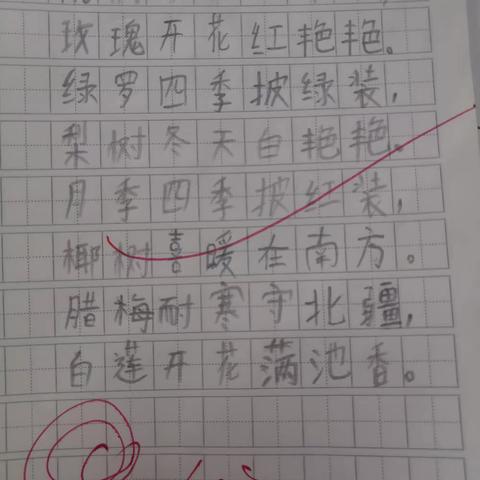 玫瑰开花红艳艳。
绿罗四季披绿装，
梨树冬天白艳艳。
月季四季披红装，
椰树喜暖在南方。
腊梅耐寒守北疆，
白莲开花满池香。